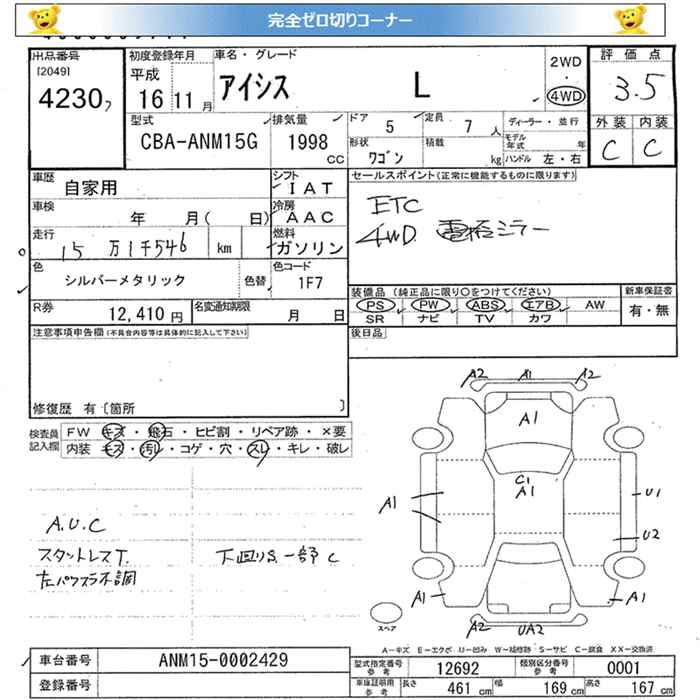 完全ゼロ切りコーナー
出品番号
[2049]
4230
初度登録年月
平成
16年11月
車名・グレード
アイシス L
2WD
・
4WD
評価点
3.5
外装 内装
C C
型式
CBA-ANM15G
排気量
1998
CC
ドア 5
定員 7人
形状 ワゴン
積載 kg
ディーラー・並行
モデル年式 年
ハンドル 左・右
車歴 自家用
シフト IAT
車検 年 月( 日)
冷房 AAC
走行 15万1千546 km
燃料 ガソリン
色 シルバーメタリック
色替
色コード 1F7
R券 12,410円
名変通知期限 月 日
セールスポイント(正常に機能するものに限ります)
ETC
4WD 電格ミラー
装備品(純正品に限り○をつけてください)
PS・PW・ABS・エアB・AW
SR ナビ TV カワ
新車保証書
有・無
後日品
注意事項申告欄(不具合内容等は具体的に記入して下さい)
修復歴 有〔箇所 〕
検査員記入欄
FW キズ・飛石・ヒビ割・リペア跡・×要
内装 キズ・汚レ・コゲ・穴・スレ・キレ・破レ
A2 A1 A2
A1
C1
A1
A1
U1
U2
A1
A1
A2 UA2
スペア
A.U.C
スタットレスT.
左パワスラ不調
下廻りS.一部C
A-キズ E-エクボ U-凹み W-補修跡 S-サビ C-腐食 XX-交換済
車台番号 ANM15-0002429
登録番号
型式指定番号参考 12692
類別区分番号参考 0001
車庫証明用参考 長さ 461cm 幅 169cm 高さ 167cm